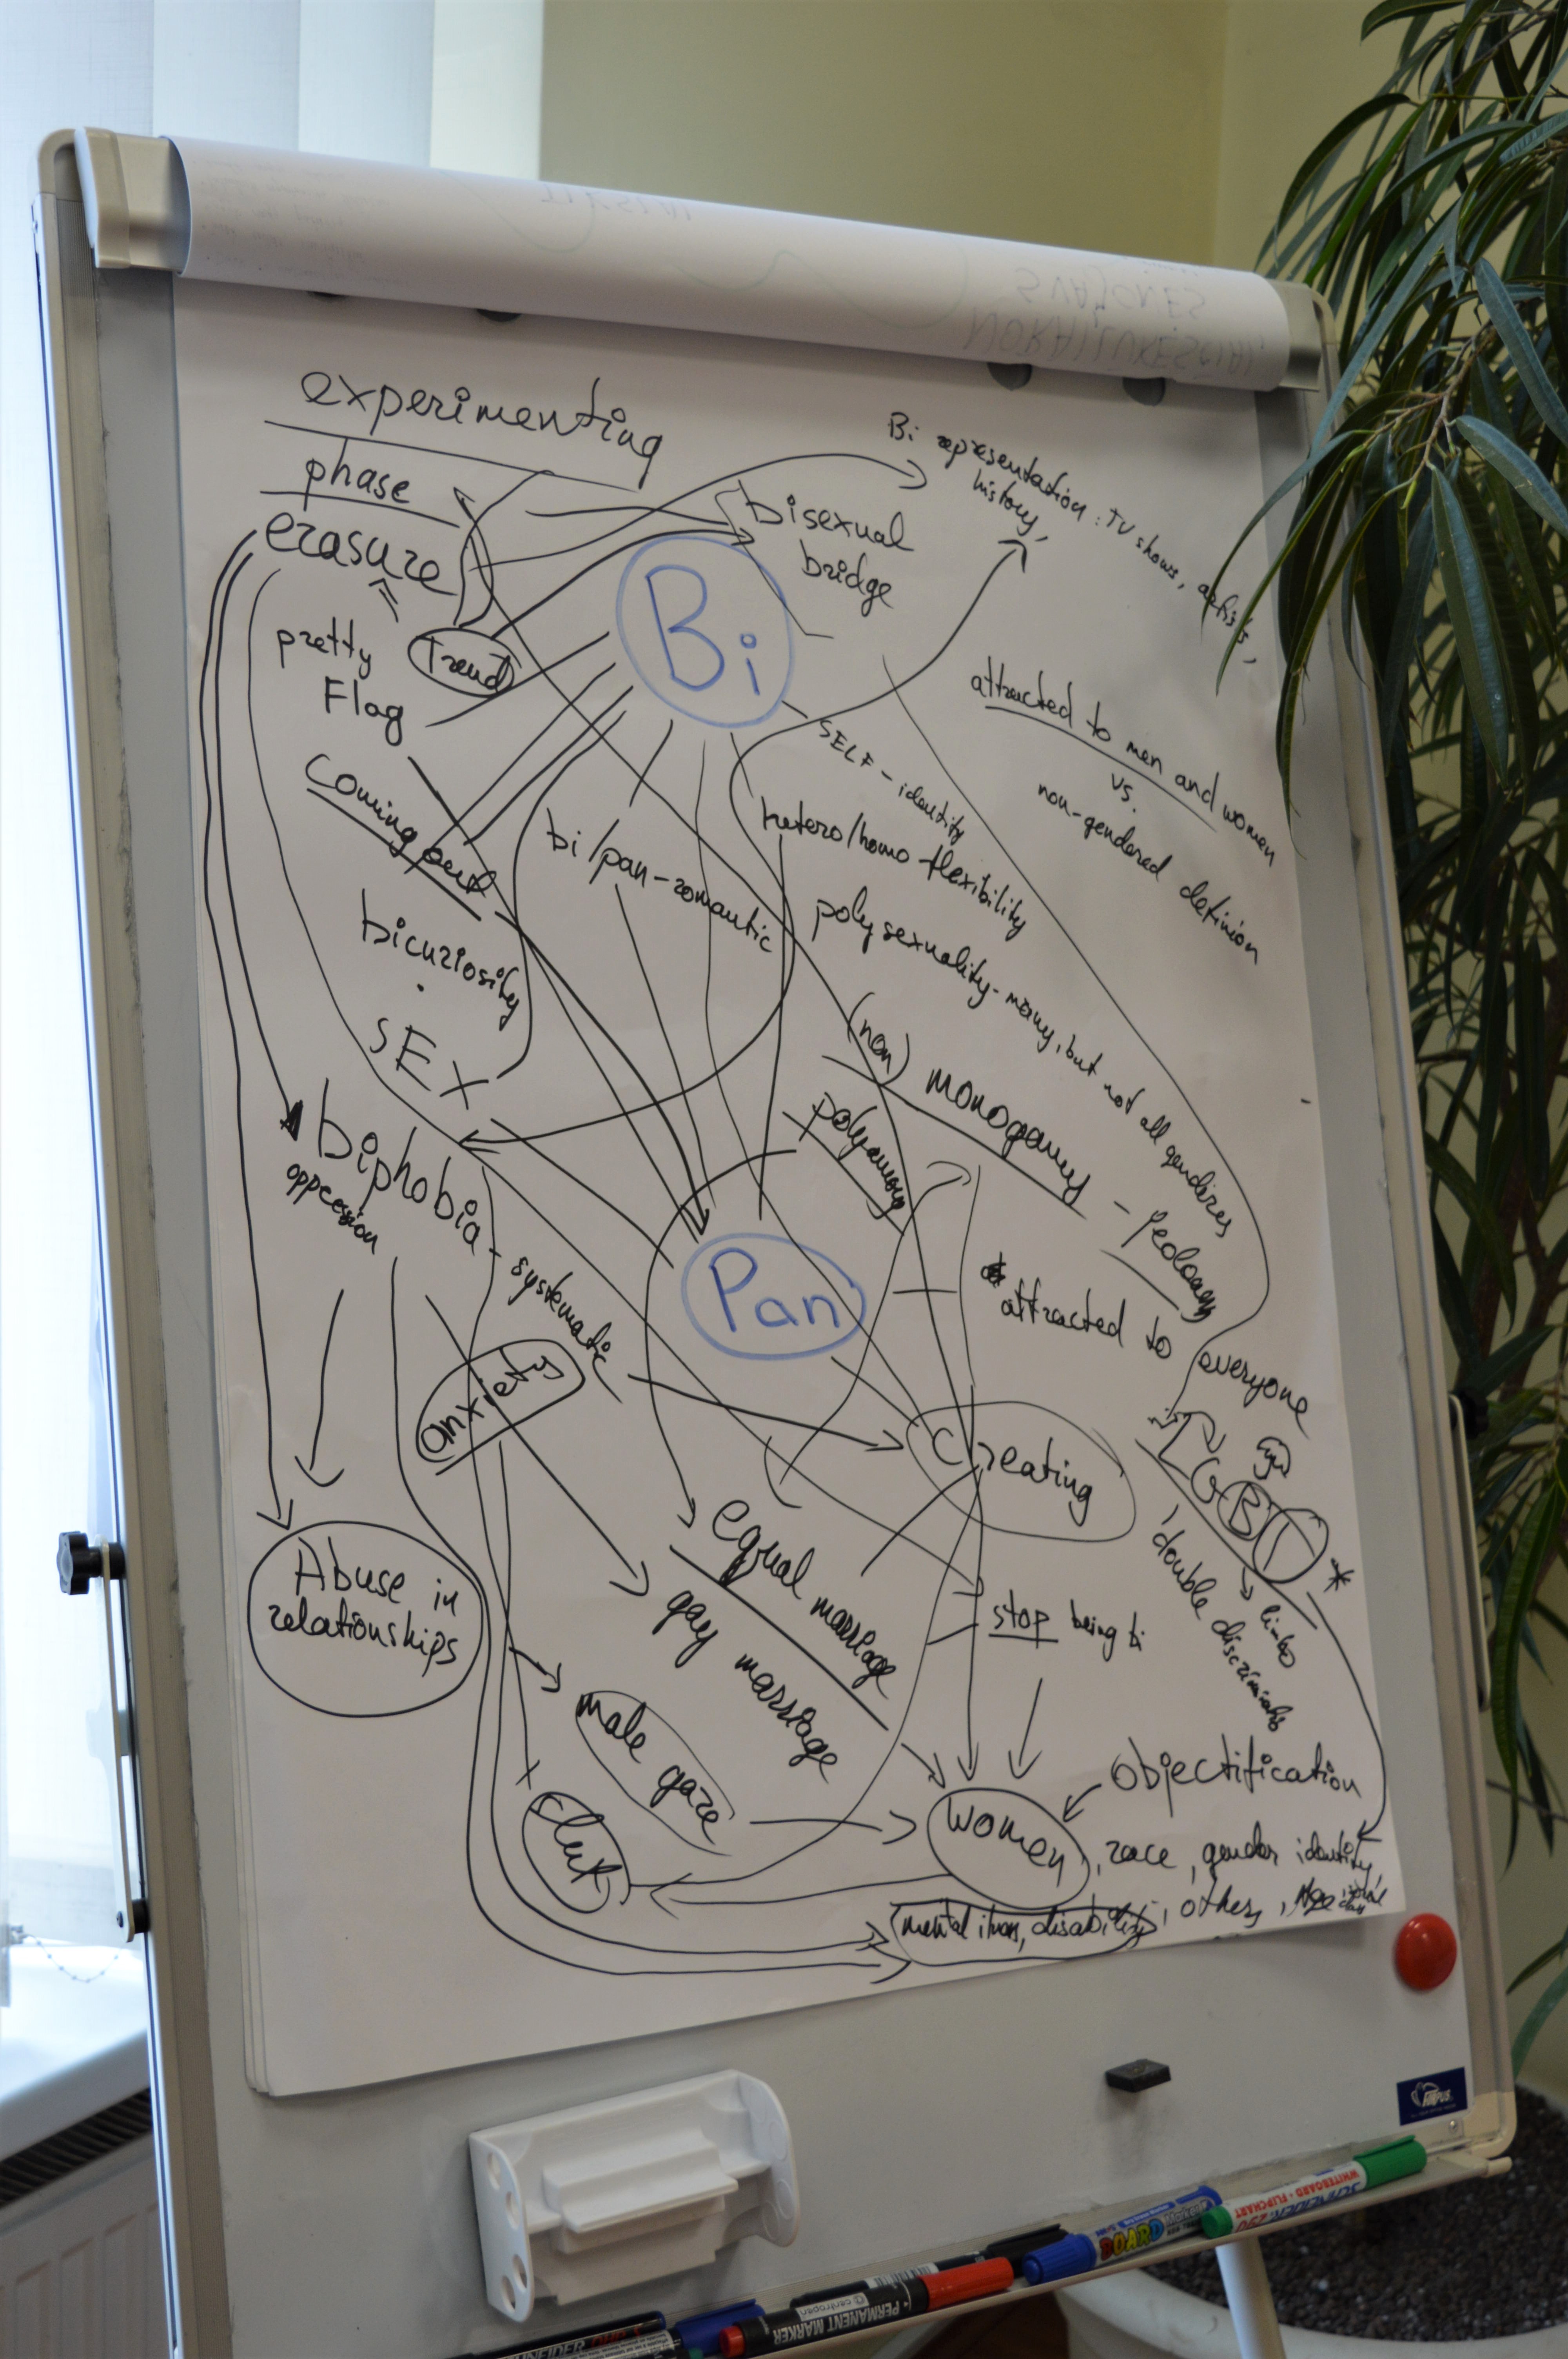 experimenting
phase
erasure
pretty
Flag
Trend
coming out
bicuriosity
SEX
Bi representation: TV shows, artists,
history,
bisexual
bridge
Bi
SELF-identity
attracted to men and women
vs.
non-gendered definion
bi/pan-romantic
hetero/homo flexibility
polysexuality-many, but not all genderes
(non) monogamy -
biphobia - systematic
Pan
attracted to everyone
anxiety
Creating
LGBT*
limbo
double
Abuse in
relationships
equal marriage
gay marriage
STOP being bi
male gaze
slut
Objectification
women, race, gender identity,
disability, others,
BOARD
WHITEBOARD + FLIPCHART
PERMANENT MARKER
centropen